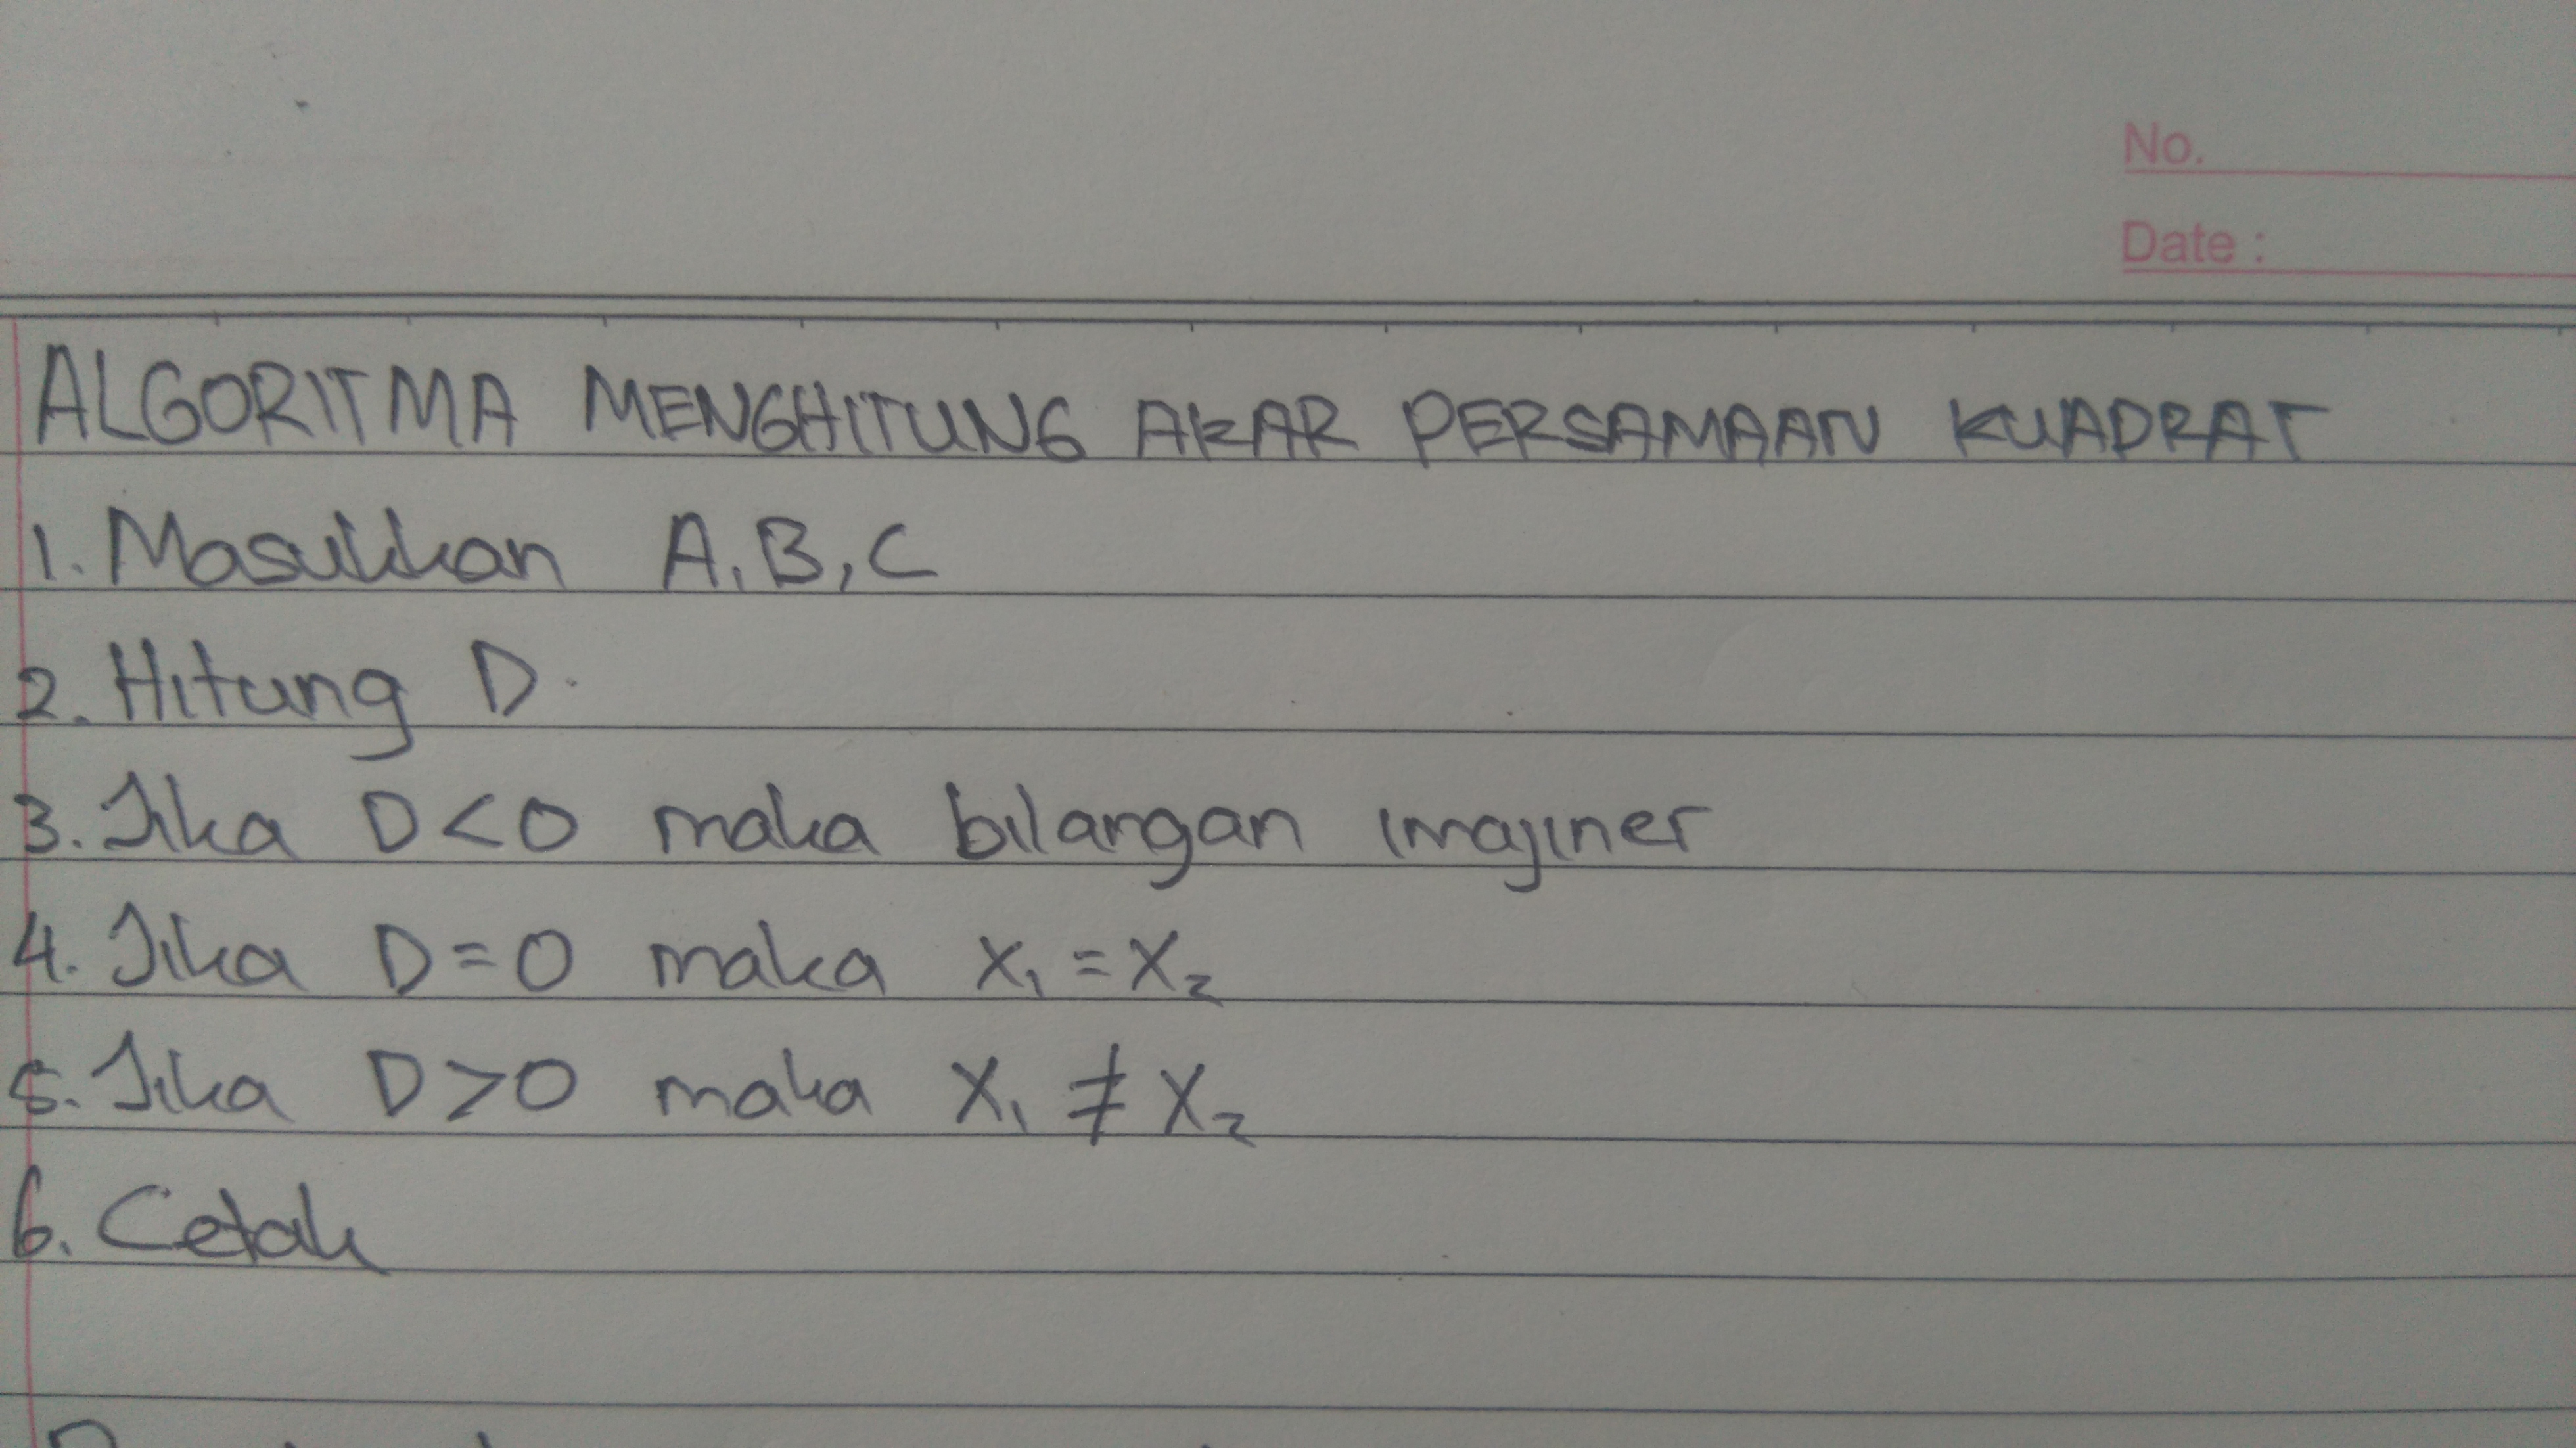 No.
Date :
ALGORITMA MENGHITUNG AKAR PERSAMAAN KUADRAT
1. Masukkan A, B, C
2. Hitung D.
3. Jika D<0 maka bilangan imajiner
4. Jika D=0 maka X₁ = X₂
5. Jika D>0 maka X₁ ≠ X₂
6. Cetak